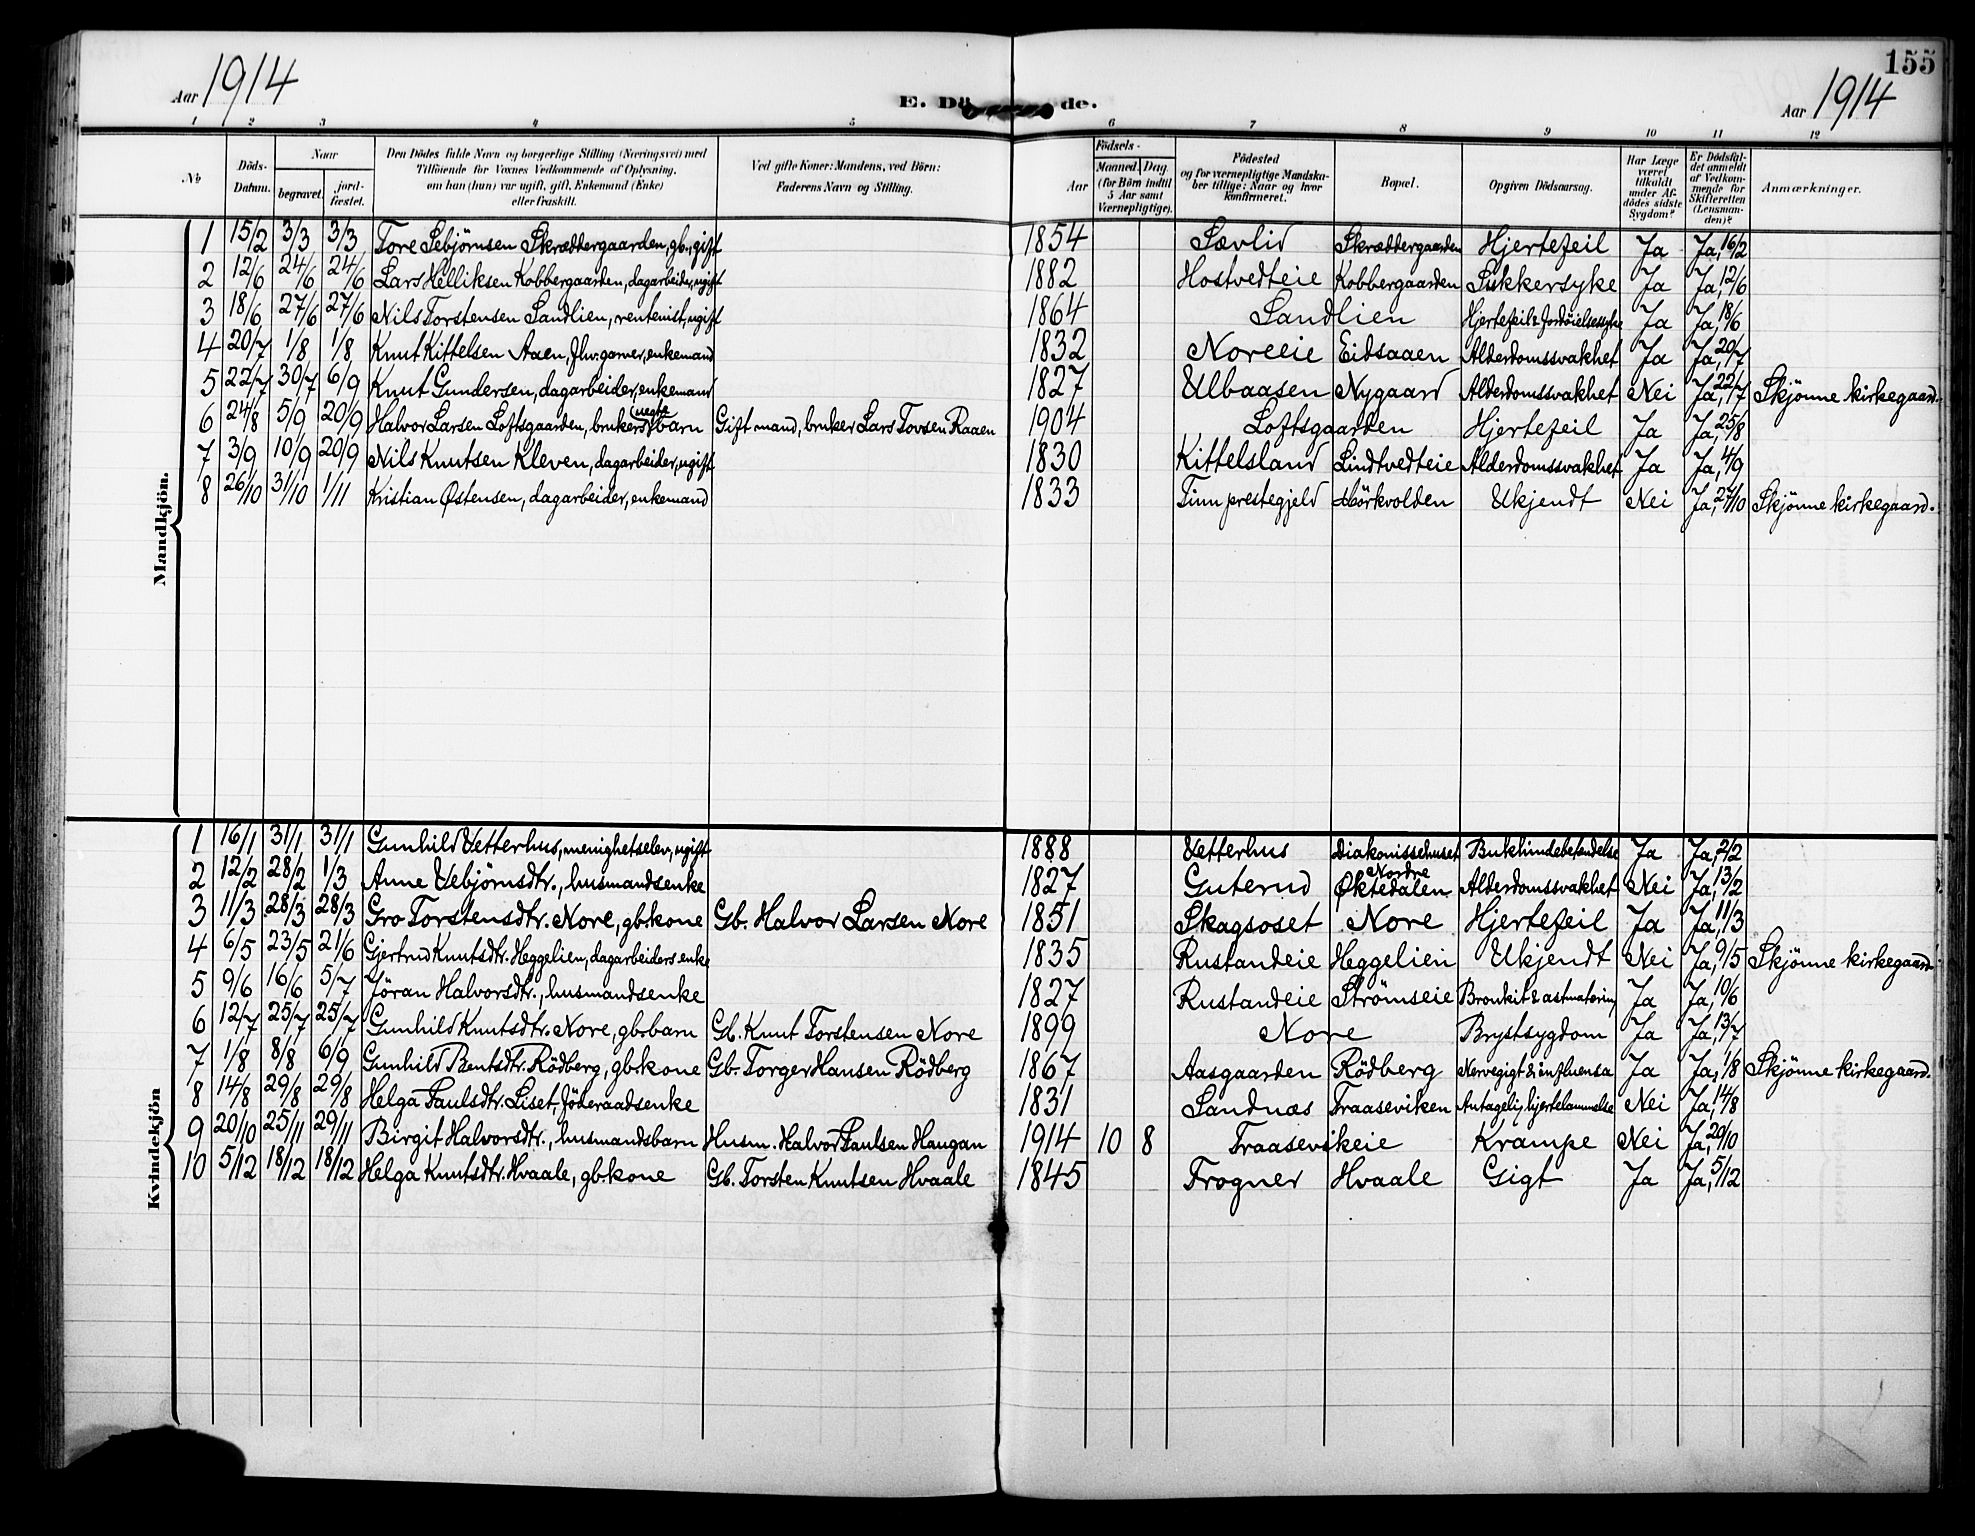 155
Aar 1914
E. Dö de.
Aar 1914
1 2 3 4 5 6 7 8 9 10 11 12
No
Döds-Datum.
Naar
begravet.
jord-fæstet.
Den Dödes fulde Navn og borgerlige Stilling (Næringsvei) med Tilföiende for Voxnes Vedkommende af Oplysning, om han (hun) var ugift, gift, Enkemand (Enke) eller fraskilt.
Ved gifte Koner: Mandens, ved Börn: Faderens Navn og Stilling.
Födsels-
Aar
Maaned. Dag.
(for Börn indtil 5 Aar samt Værnepligtige).
Födested og for værnepligtige Mandskaber tillige: Naar og hvor konfirmeret.
Bopæl.
Opgiven Dödsaarsag.
Har Læge været tilkaldt under Afdödes sidste Sygdom?
Er Dödsfaldet anmeldt af Vedkommende for Skifteretten (Lensmanden)?
Anmærkninger.
Mandkjön.
1 15/2 3/3 3/3 Tore Sebjørnsen Skræddergaarden, gb., gift 1854 Sævlid Skræddergaarden Hjertefeil Ja Ja, 16/2
2 12/6 24/6 24/6 Lars Helliksen Kobbergaarden, dagarbeider, ugift 1882 Hostvedteie Kobbergaarden Sukkersyke Ja Ja, 12/6
3 18/6 27/6 27/6 Nils Torstensen Sandlien, rentenist, ugift 1864 Sandlien Hjertefeil & fordøielsessyke Ja Ja, 18/6
4 20/7 1/8 1/8 Knut Kittelsen Aaen, garver, enkemand 1832 Noreeie Eidsaaen Alderdomssvakhet Ja Ja, 20/7
5 22/7 30/7 6/9 Knut Gundersen, dagarbeider, enkemand 1827 Ulbaasen Nygaard Alderdomssvakhet Nei Ja, 22/7 Skjønne kirkegaard.
6 24/8 5/9 20/9 Halvor Larsen Loftsgaarden, brukers (uegte) barn Gift mand, bruker Lars Tovsen Raaen 1904 Loftsgaarden Hjertefeil Ja Ja, 25/8
7 3/9 10/9 20/9 Nils Knutsen Kleven, dagarbeider, ugift 1830 Kittelsland Lindtvedteie Alderdomssvakhet Ja Ja, 4/9
8 26/10 31/10 1/11 Kristian Østensen, dagarbeider, enkemand 1833 Tinn prestegjeld Mörkvolden Ukjendt Nei Ja, 27/10 Skjønne kirkegaard.
Kvindekjön
1 16/1 31/1 31/1 Gunhild Vetterhus, menighetselev, ugift 1888 Vetterhus Diakonissehuset Bukhindebetændelse Ja Ja, 2/2
2 12/2 28/2 1/3 Anne Vebjörnsdtr., husmandsenke 1827 Guterud Nordre Øktedalen Alderdomssvakhet Nei Ja, 13/2
3 11/3 28/3 28/3 Gro Torstensdtr. Nore, gb.kone Gb. Halvor Larsen Nore 1851 Skagsoset Nore Hjertefeil Ja Ja, 11/3
4 6/5 23/5 21/6 Gjertrud Knutsdtr. Heggelien, dagarbeiders enke 1835 Rustandeie Heggelien Ukjendt Nei Ja, 9/5 Skjønne kirkegaard.
5 9/6 16/6 5/7 Jöran Halvorsdtr., husmandsenke 1827 Rustandeie Strømseie Bronkit & astmatering Ja Ja, 10/6
6 12/7 25/7 25/7 Gunhild Knutsdtr. Nore, gb.barn Gb. Knut Torstensen Nore 1899 Nore Brystsygdom Ja Ja, 13/7
7 1/8 8/8 6/9 Gunhild Bentsdtr. Rödberg, gb.kone Gb. Torger Hansen Rödberg 1867 Aasgaarden Rödberg Nervegigt & influensa Ja Ja, 1/8 Skjønne kirkegaard.
8 14/8 29/8 29/8 Helga Paulsdtr. Liset, föderaadsenke 1831 Sandnæs Traaseviken Antagelig hjertelammelse Nei Ja, 14/8
9 20/10 25/11 29/11 Birgit Halvorsdtr., husmandsbarn Husm. Halvor Paulsen Haugan 1914 10 8 Traasevikeie Krampe Nei Ja, 20/10
10 5/12 18/12 18/12 Helga Knutsdtr. Hvaale, gb.kone Gb. Torsten Knutsen Hvaale 1845 Frogner Hvaale Gigt Ja Ja, 5/12